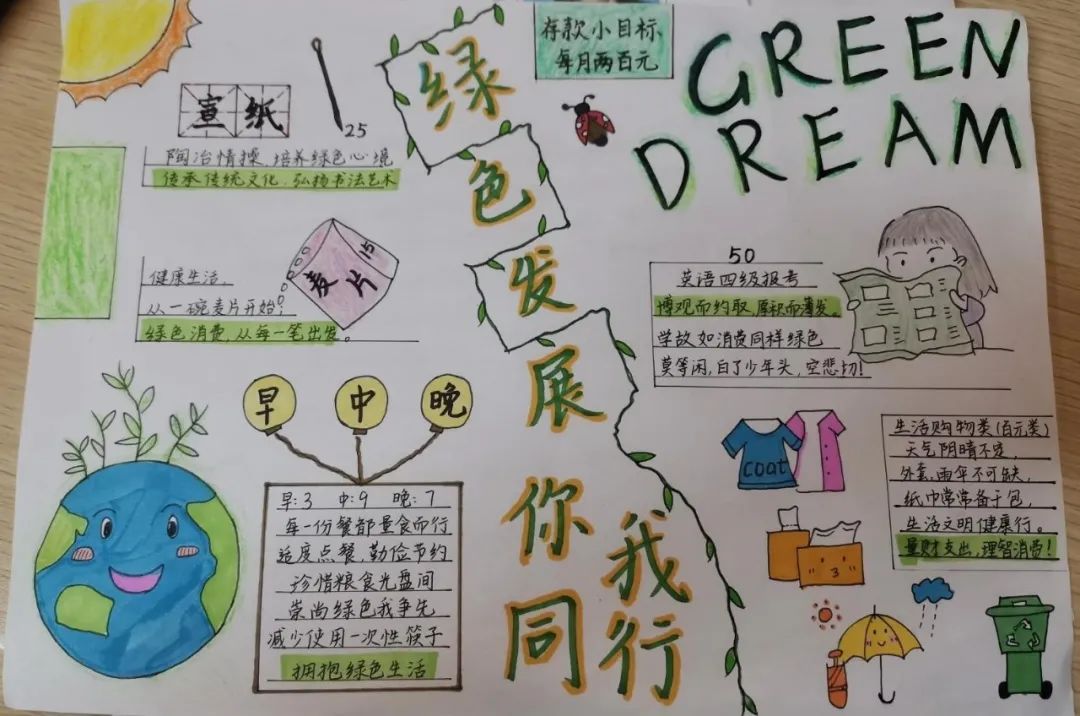 存款小目标
每月两百元
GREEN
DREAM
绿色发展你我同行
宣纸
25
陶冶情操,培养绿色心境
传承传统文化,弘扬书法艺术
麦片
15
健康生活,
从一碗麦片开始!
绿色消费,从每一笔出发。
50
英语四级报考
博观而约取,厚积而薄发。
学故如消费同样绿色
莫等闲,白了少年头,空悲切!
早
中
晚
早:3 中:9 晚:7
每一份餐都量食而行
适度点餐,勤俭节约
珍惜粮食光盘间
崇尚绿色我争先
减少使用一次性筷子
拥抱绿色生活
coat
生活购物类(百元类)
天气阴晴不定,
外套、雨伞不可缺,
纸巾常常备于包,
生活文明健康行。
量财支出,理智消费!